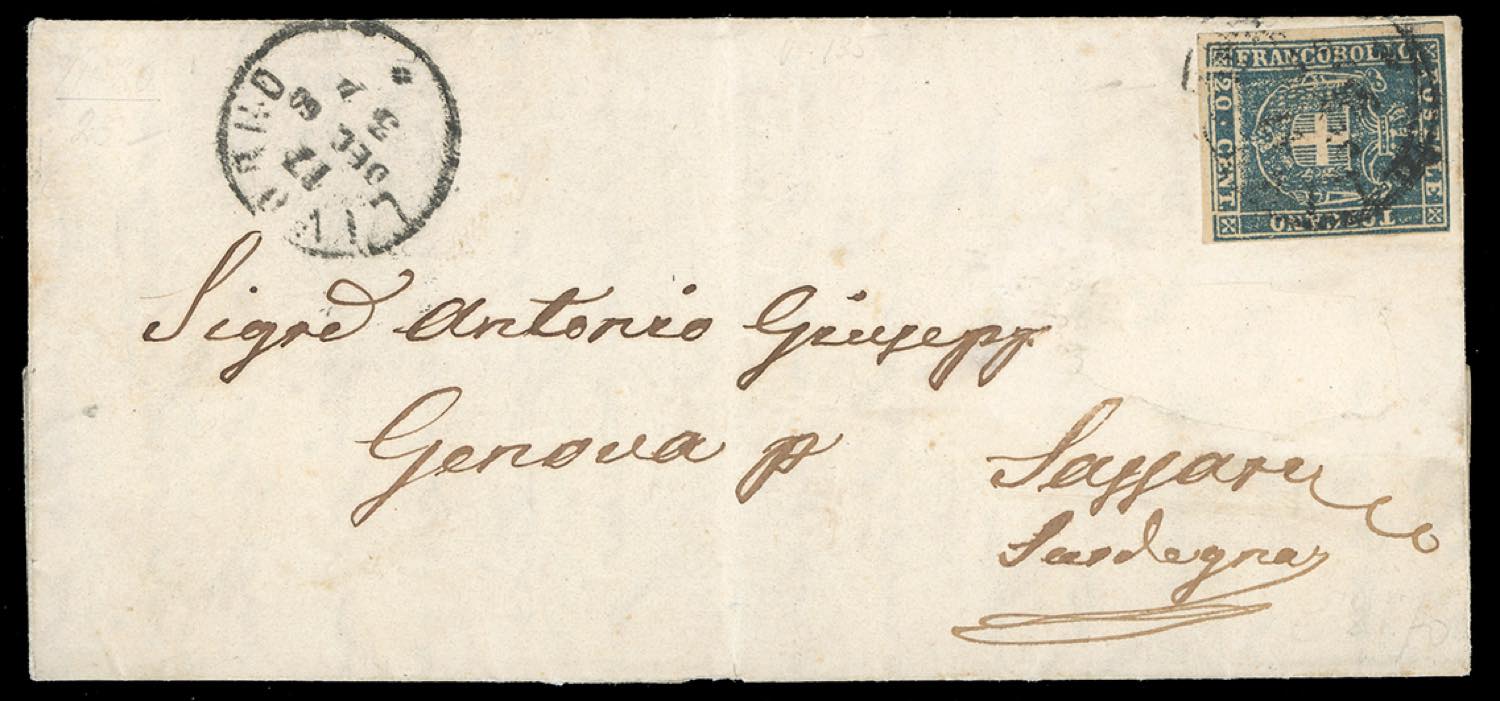 LIVORNO
17
DEC
FRANCOBOLLO
POSTALE
TOSCANO
20 CENT
Sigre Antonio Giusepp
Genova p
Sassari
Sardegna